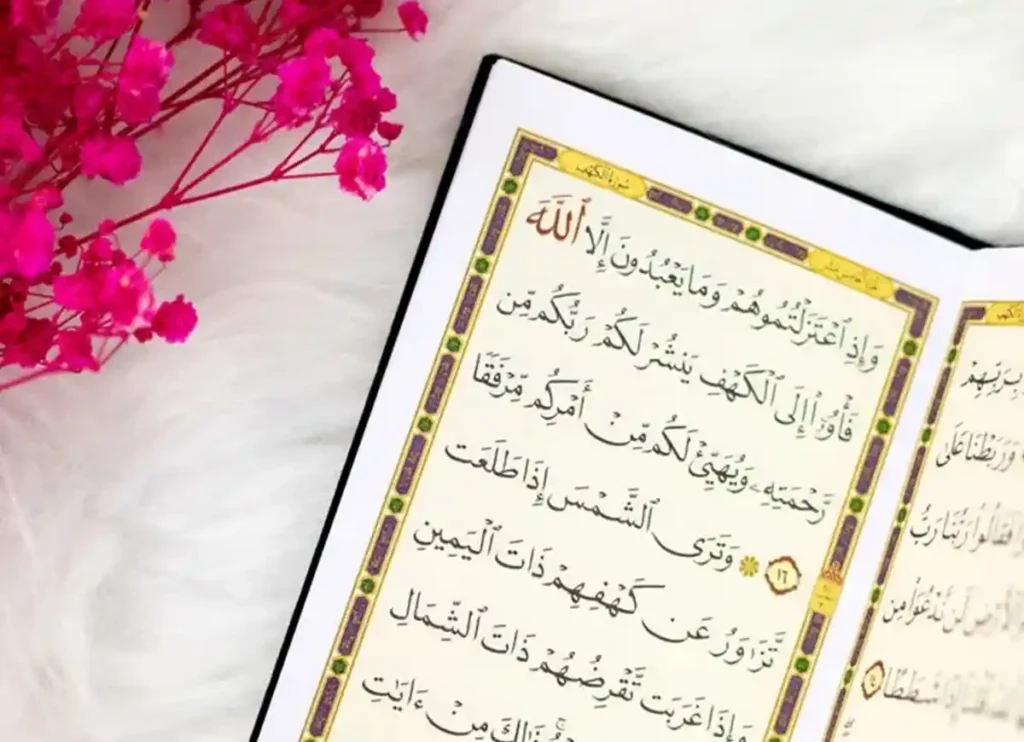 سورة الكهف
وَإِذِ ٱعْتَزَلْتُمُوهُمْ وَمَا يَعْبُدُونَ إِلَّا ٱللَّهَ
فَأْوُۥٓا۟ إِلَى ٱلْكَهْفِ يَنشُرْ لَكُمْ رَبُّكُم مِّن
رَّحْمَتِهِۦ وَيُهَيِّئْ لَكُم مِّنْ أَمْرِكُم مِّرْفَقًا
١٦ وَتَرَى ٱلشَّمْسَ إِذَا طَلَعَت
تَّزَٰوَرُ عَن كَهْفِهِمْ ذَاتَ ٱلْيَمِينِ
وَإِذَا غَرَبَت تَّقْرِضُهُمْ ذَاتَ ٱلشِّمَالِ
مِنْ ءَايَٰتِ
بِرَبِّهِمْ
وَرَبَطْنَا عَلَىٰ
فَقَالُوا۟ رَبُّنَا رَبُّ
لَن نَّدْعُوَا۟ مِن
شَطَطًا ١٤